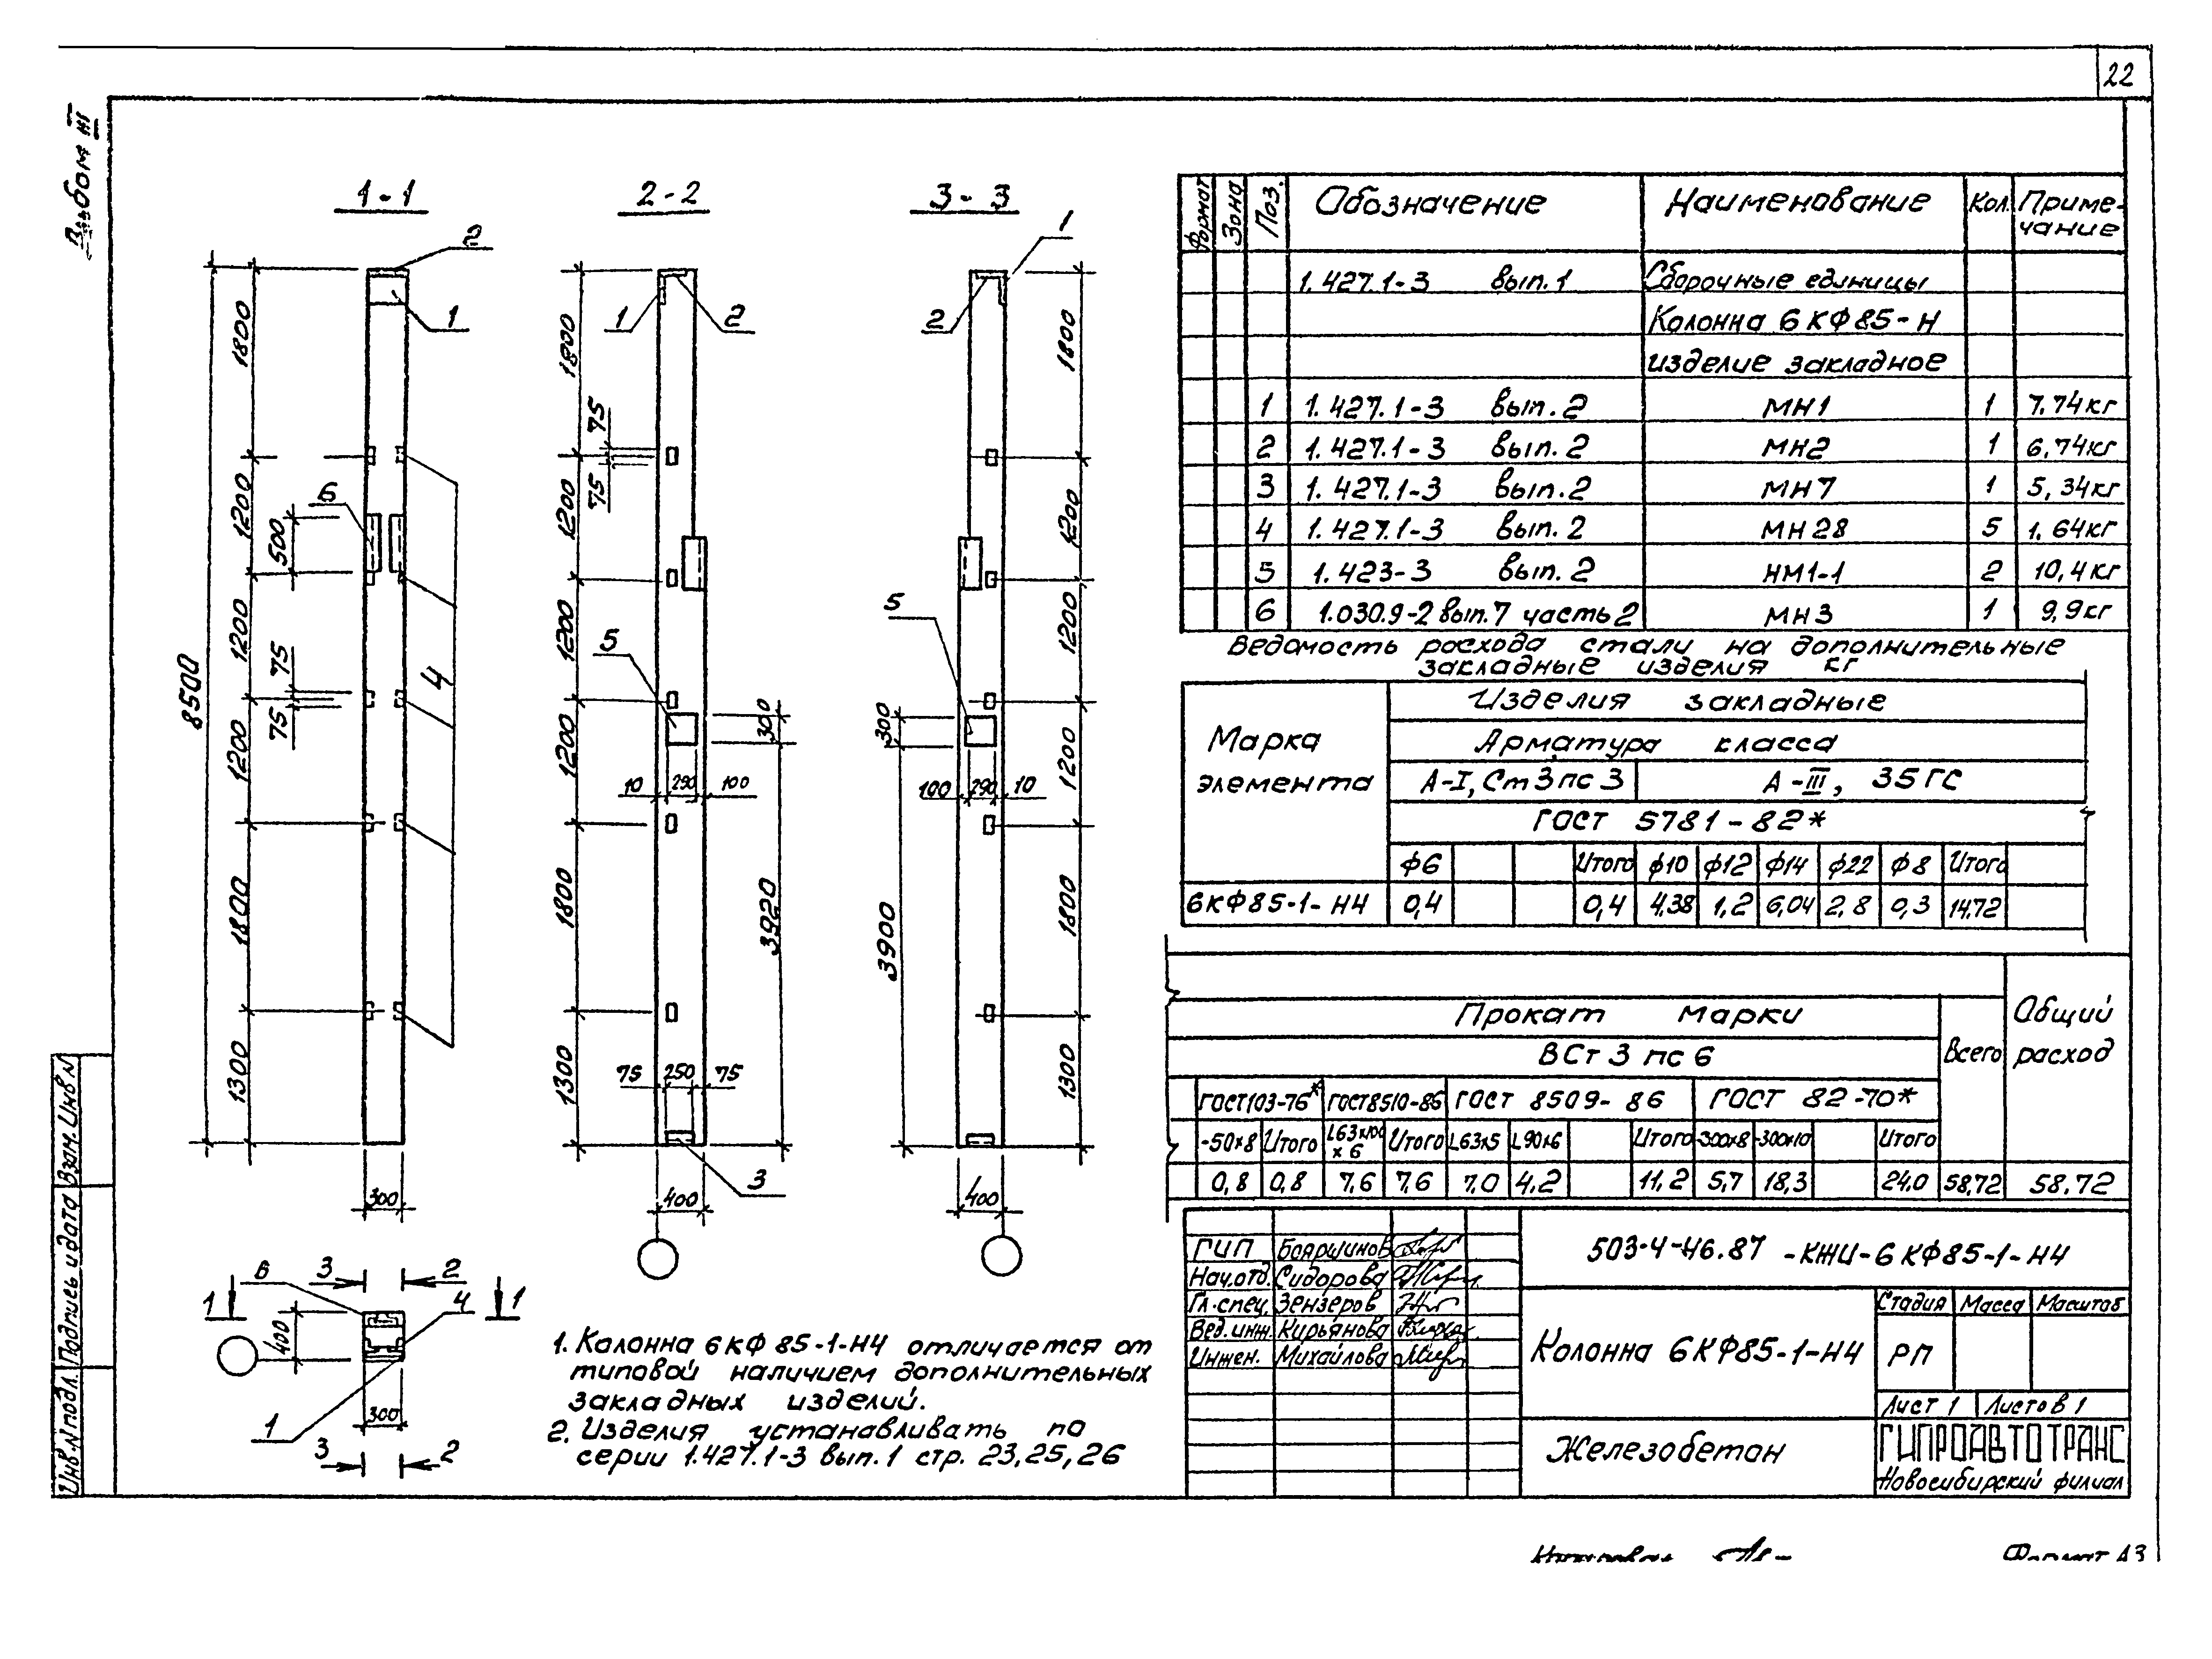 22
Альбом III
1-1
2-2
3-3
2
1
1
2
1
2
1800
1200
500
1200
75
75
1200
1800
1300
8500
6
4
300
1800
75
75
1200
1200
1200
1800
1300
5
300
10 290 100
3920
75 250 75
3
400
1800
1200
1200
1200
1800
1300
5
300
100 290 10
3900
400
6
3
2
1
1
4
400
300
1
3
2
1. Колонна 6КФ85-1-Н4 отличается от
типовой наличием дополнительных
закладных изделий.
2. Изделия устанавливать по
серии 1.427.1-3 вып.1 стр. 23,25,26
Формат Зона Поз. Обозначение Наименование Кол. Приме-
чание
1.427.1-3 вып.1 Сборочные единицы
Колонна 6КФ85-Н
изделие закладное
1 1.427.1-3 вып.2 МН1 1 7,74кг
2 1.427.1-3 вып.2 МН2 1 6,74кг
3 1.427.1-3 вып.2 МН7 1 5,34кг
4 1.427.1-3 вып.2 МН28 5 1,64кг
5 1.423-3 вып.2 НМ1-1 2 10,4кг
6 1.030.9-2 вып.7 часть2 МН3 1 9,9кг
Ведомость расхода стали на дополнительные
закладные изделия кг
Марка
элемента
Изделия закладные
Арматура класса
А-I, Ст3пс3 А-III, 35ГС
ГОСТ 5781-82*
ф6 Итого ф10 ф12 ф14 ф22 ф8 Итого
6КФ85-1-Н4 0,4 0,4 4,38 1,2 6,04 2,8 0,3 14,72
Прокат марки
Всего
Общий
расход
ВСт3пс6
ГОСТ103-76* ГОСТ8510-86 ГОСТ 8509-86 ГОСТ 82-70*
-50х8 Итого L63х100
х6 Итого L63х5 L90х6 Итого -300х8 -300х10 Итого
0,8 0,8 7,6 7,6 7,0 4,2 11,2 5,7 18,3 24,0 58,72 58.72
ГИП Бояршинов
Нач.отд. Сидорова
Гл.спец. Зензеров
Вед.инж. Кирьянова
Инжен. Михайлова
503-4-46.87 -КЖИ-6КФ85-1-Н4
Колонна 6КФ85-1-Н4
Стадия Масса Масштаб
РП
Лист 1 Листов 1
Железобетон
ГИПРОАВТОТРАНС
Новосибирский филиал
Инв.N подл. Подпись и дата Взам.Инв N
Формат А3